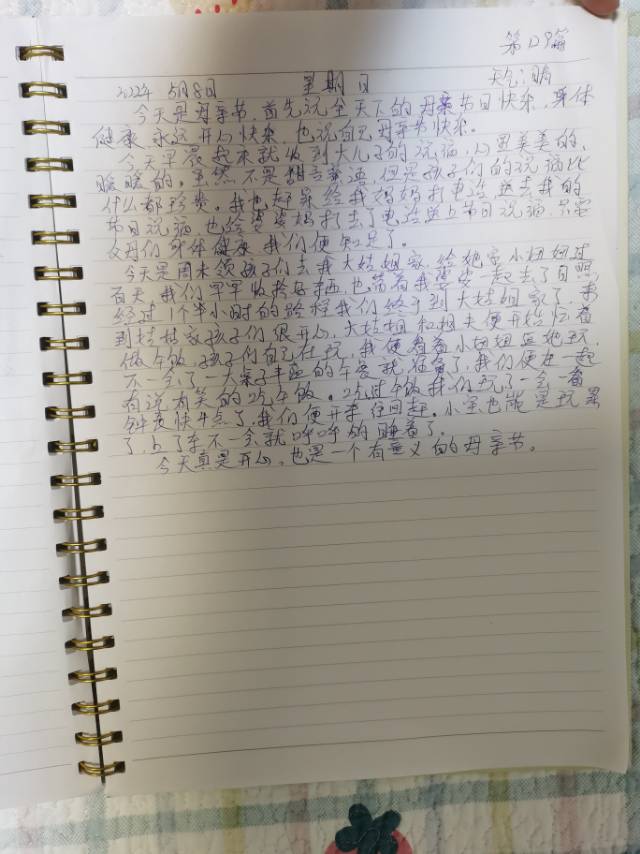 第129篇
2022年 5月8日 星期日 天气:晴
今天是母亲节,首先祝全天下的母亲节日快乐,身体
健康,永远开心快乐,也祝自己母亲节快乐。
今天早晨起来就收到大儿子的祝福,心里美美的,
暖暖的。虽然不是甜言蜜语,但是孩子们的祝福比
什么都珍贵。我也赶紧给我妈妈打电话送去我的
节日祝福,也给婆婆妈打去了电话送上节日祝福,只要
父母们身体健康,我们便知足了。
今天是周末领孩子们去我大姑姐家,给她家小妞妞过
百天,我们早早收拾好东西,也带着我婆婆一起去了日照
经过1个半小时的路程我们终于到大姑姐家了,来
到姑姑家孩子们很开心,大姑姐和姐夫便开始忙着
做午饭,孩子们自己在玩,我便看着小妞妞逗她玩,
不一会了,大桌子丰盛的午餐就在了,我们便在一起
有说有笑的吃午饭。吃过午饭我们玩了一会一看
钟表快4点了,我们便开车往回赶。小宝也能是玩累
了,上了车不一会就呼呼的睡着了。
今天真是开心,也是一个有意义的母亲节。